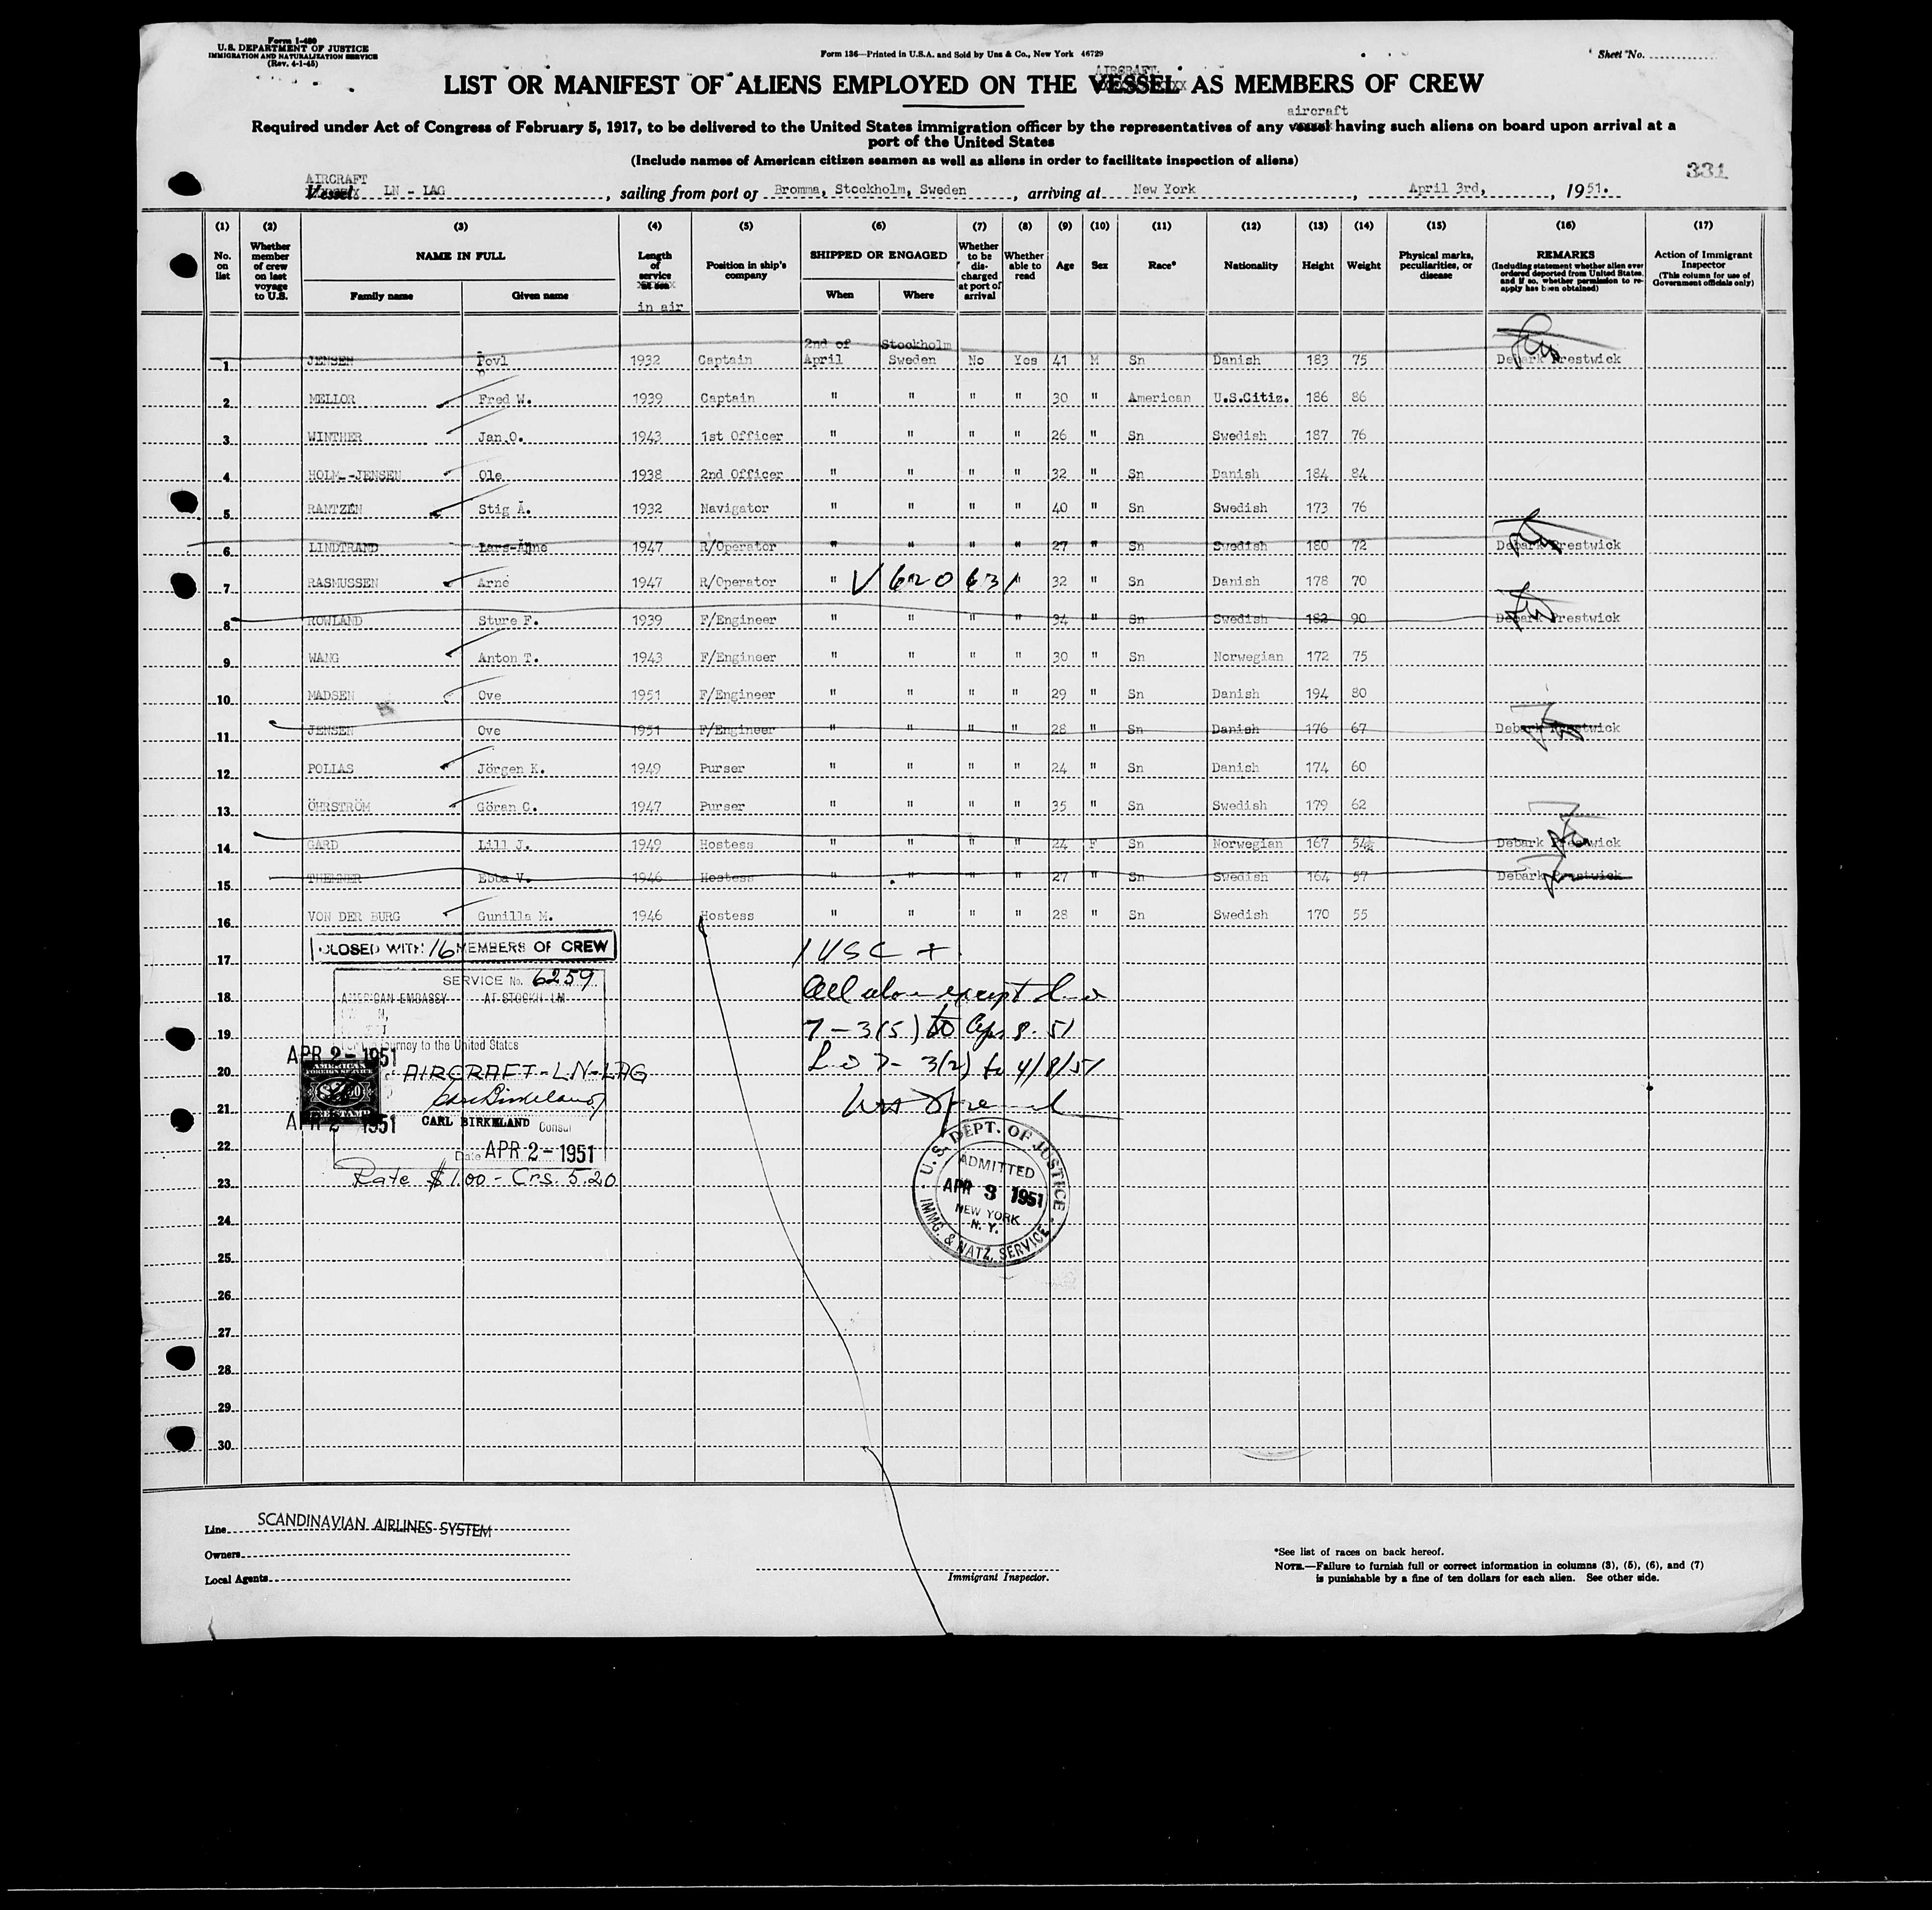 Form I-480
U.S. DEPARTMENT OF JUSTICE
IMMIGRATION AND NATURALIZATION SERVICE
(Rev. 4-1-45)
Form 136—Printed in U.S.A. and Sold by Unz & Co., New York 46729
Sheet No.
AIRCRAFT
LIST OR MANIFEST OF ALIENS EMPLOYED ON THE VESSEL AS MEMBERS OF CREW
aircraft
Required under Act of Congress of February 5, 1917, to be delivered to the United States immigration officer by the representatives of any vessel having such aliens on board upon arrival at a
port of the United States
(Include names of American citizen seamen as well as aliens in order to facilitate inspection of aliens)
331
AIRCRAFT
Vessel LN - LAG, sailing from port of Bromma, Stockholm, Sweden, arriving at New York, April 3rd, 1951.
(1) (2) (3) (4) (5) (6) (7) (8) (9) (10) (11) (12) (13) (14) (15) (16) (17)
No. on list
Whether member of crew on last voyage to U.S.
NAME IN FULL
Family name
Given name
Length of service at sea in air
Position in ship's company
SHIPPED OR ENGAGED
When
Where
Whether to be discharged at port of arrival
Whether able to read
Age
Sex
Race*
Nationality
Height
Weight
Physical marks, peculiarities, or disease
REMARKS
(Including statement whether alien ever ordered deported from United States, and if so, whether permission to re-apply has been obtained)
Action of Immigrant Inspector
(This column for use of Government officials only)
2nd of Stockholm
1 JENSEN Povl 1932 Captain April Sweden No Yes 41 M Sn Danish 183 75 Debark Prestwick
2 MELLOR Fred W. 1939 Captain " " " " 30 " American U.S.Citiz. 186 86
3 WINTHER Jan O. 1943 1st Officer " " " " 26 " Sn Swedish 187 76
4 HOLM-JENSEN Ole 1938 2nd Officer " " " " 32 " Sn Danish 184 84
5 RANTZÉN Stig Å. 1932 Navigator " " " " 40 " Sn Swedish 173 76
6 LINDTRAND Lars-Åne 1947 R/Operator " " " " 27 " Sn Swedish 180 72 Debark Prestwick
7 RASMUSSEN Arne 1947 R/Operator " V 620 631 " 32 " Sn Danish 178 70
8 ROWLAND Sture F. 1939 F/Engineer " " " " 34 " Sn Swedish 182 90 Debark Prestwick
9 WANG Anton T. 1943 F/Engineer " " " " 30 " Sn Norwegian 172 75
10 MADSEN Ove 1951 F/Engineer " " " " 29 " Sn Danish 194 80
11 JENSEN Ove 1951 F/Engineer " " " " 28 " Sn Danish 176 67 Debark Prestwick
12 POLIAS Jörgen K. 1949 Purser " " " " 24 " Sn Danish 174 60
13 ÖHRSTRÖM Göran C. 1947 Purser " " " " 35 " Sn Swedish 179 62
14 GARD Lill J. 1949 Hostess " " " " 24 F Sn Norwegian 167 54 Debark Prestwick
15 THEMNER Ebba V. 1946 Hostess " " " " 27 " Sn Swedish 164 57 Debark Prestwick
16 VON DER BURG Gunilla M. 1946 Hostess " " " " 28 " Sn Swedish 170 55
17 CLOSED WITH 16 MEMBERS OF CREW 1 USC +
SERVICE No. 6259
18 AMERICAN EMBASSY AT STOCKHOLM All above except
19 7-3(5) to Apr 8-51
journey to the United States
APR 2 - 1951
20 AIRCRAFT - LN - LAG 7- 3(2) to 4/8/51
AMERICAN FOREIGN SERVICE
FEE STAMP
21 Carl Birkeland
APR 2 1951 CARL BIRKELAND Consul
22 Date APR 2 - 1951
U.S. DEPT. OF JUSTICE
ADMITTED
APR 3 1951
NEW YORK
N. Y.
IMMG. & NATZ. SERVICE
23 Rate $1.00 - Crs. 5.20
24
25
26
27
28
29
30
Line SCANDINAVIAN AIRLINES SYSTEM
Owners
Local Agents
Immigrant Inspector.
*See list of races on back hereof.
NOTE.—Failure to furnish full or correct information in columns (3), (5), (6), and (7)
is punishable by a fine of ten dollars for each alien. See other side.